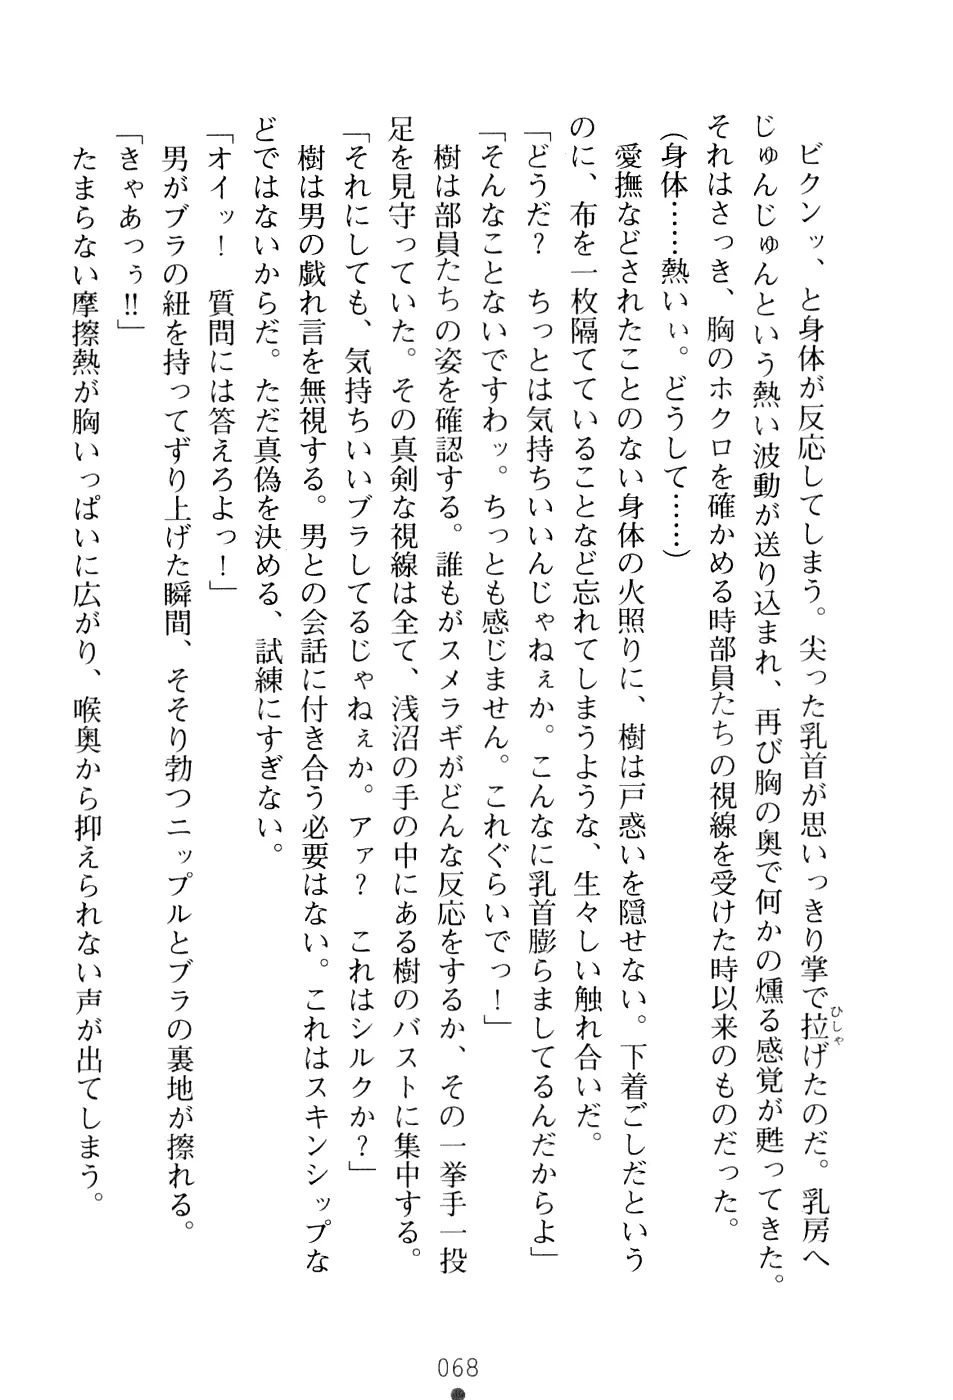 ビクンッ、と身体が反応してしまう。尖った乳首が思いっきり掌で拉げたのだ。乳房へ
じゅんじゅんという熱い波動が送り込まれ、再び胸の奥で何かの燻る感覚が甦ってきた。
それはさっき、胸のホクロを確かめる時部員たちの視線を受けた時以来のものだった。
(身体……熱いぃ。どうして……)
愛撫などされたことのない身体の火照りに、樹は戸惑いを隠せない。下着ごしだという
のに、布を一枚隔てていることなど忘れてしまうような、生々しい触れ合いだ。
「どうだ？　ちっとは気持ちいいんじゃねぇか。こんなに乳首膨らましてるんだからよ」
「そんなことないですわッ。ちっとも感じません。これぐらいでっ！」
樹は部員たちの姿を確認する。誰もがスメラギがどんな反応をするか、その一挙手一投
足を見守っていた。その真剣な視線は全て、浅沼の手の中にある樹のバストに集中する。
「それにしても、気持ちいいブラしてるじゃねぇか。アァ？　これはシルクか？」
樹は男の戯れ言を無視する。男との会話に付き合う必要はない。これはスキンシップな
どではないからだ。ただ真偽を決める、試練にすぎない。
「オイッ！　質問には答えろよっ！」
男がブラの紐を持ってずり上げた瞬間、そそり勃つニップルとブラの裏地が擦れる。
「きゃあっぅ!!」
たまらない摩擦熱が胸いっぱいに広がり、喉奥から抑えられない声が出てしまう。
ひしゃ
068